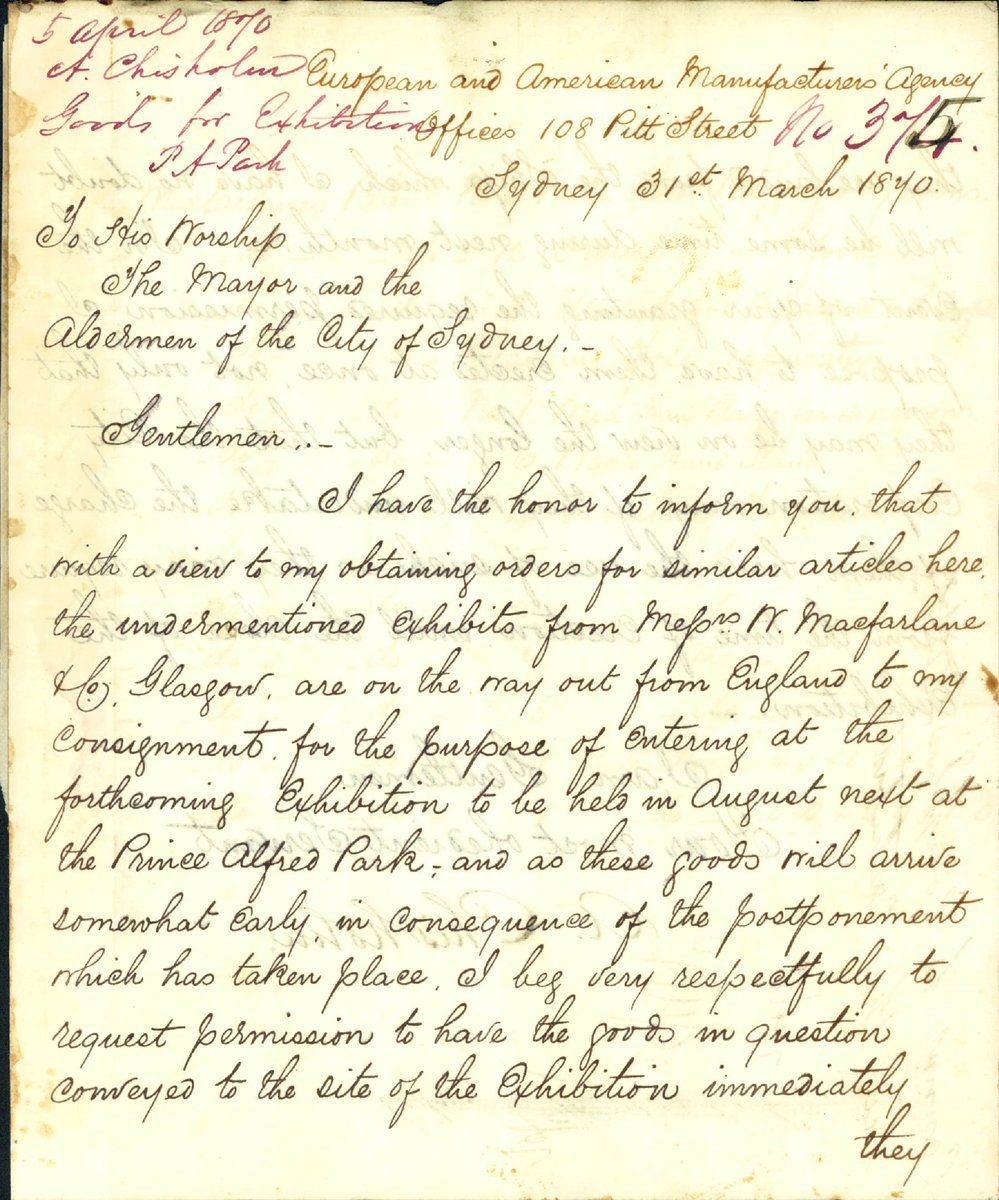 5 April 1870
A. Chisholm
Goods for Exhibition
P A Park
European and American Manufacturers' Agency
Offices 108 Pitt Street
No 375.
Sydney 31st March 1870.
To His Worship
The Mayor and the
Aldermen of the City of Sydney. -
Gentlemen. -
I have the honor to inform you, that
with a view to my obtaining orders for similar articles here,
the undermentioned exhibits from Messrs W. Macfarlane
& Co, Glasgow, are on the way out from England to my
consignment, for the purpose of entering at the
forthcoming Exhibition to be held in August next at
the Prince Alfred Park, - and as these goods will arrive
somewhat early, in consequence of the postponement
which has taken place, I beg very respectfully to
request permission to have the goods in question
conveyed to the site of the Exhibition immediately
they